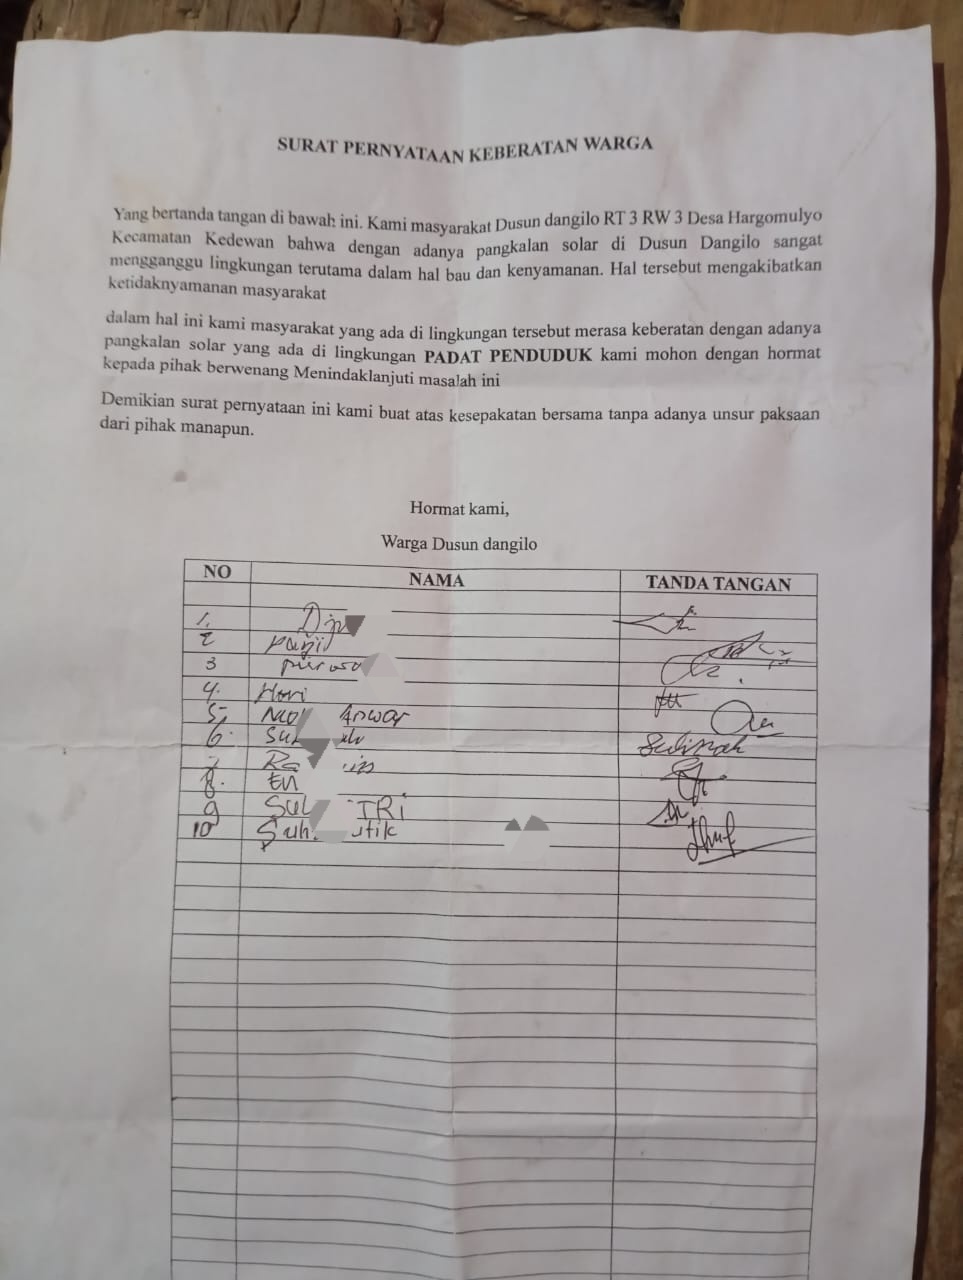 SURAT PERNYATAAN KEBERATAN WARGA
Yang bertanda tangan di bawah ini. Kami masyarakat Dusun dangilo RT 3 RW 3 Desa Hargomulyo
Kecamatan Kedewan bahwa dengan adanya pangkalan solar di Dusun Dangilo sangat
mengganggu lingkungan terutama dalam hal bau dan kenyamanan. Hal tersebut mengakibatkan
ketidaknyamanan masyarakat
dalam hal ini kami masyarakat yang ada di lingkungan tersebut merasa keberatan dengan adanya
pangkalan solar yang ada di lingkungan PADAT PENDUDUK kami mohon dengan hormat
kepada pihak berwenang Menindaklanjuti masalah ini
Demikian surat pernyataan ini kami buat atas kesepakatan bersama tanpa adanya unsur paksaan
dari pihak manapun.
Hormat kami,
Warga Dusun dangilo
NO NAMA TANDA TANGAN
1.
2
3
4. Hari
5, Anwar
6.
7
8.
9 TRi
10